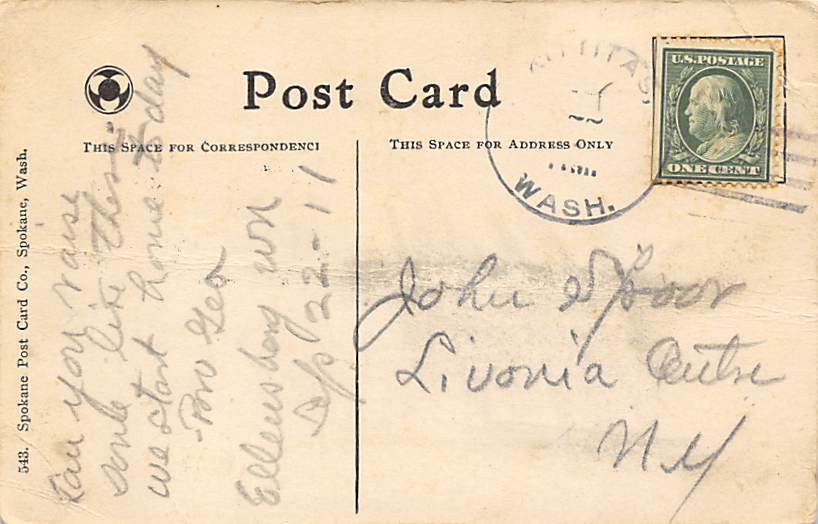 Post Card
THIS SPACE FOR CORRESPONDENCE
THIS SPACE FOR ADDRESS ONLY
KITTITAS,
WASH.
U.S. POSTAGE
ONE CENT
543. Spokane Post Card Co., Spokane, Wash.
Can you raise
some like these
we start home to day
Bro Geo
Ellensburg Wn
Sep 22-11
John Spoor
Livonia Centre
N Y